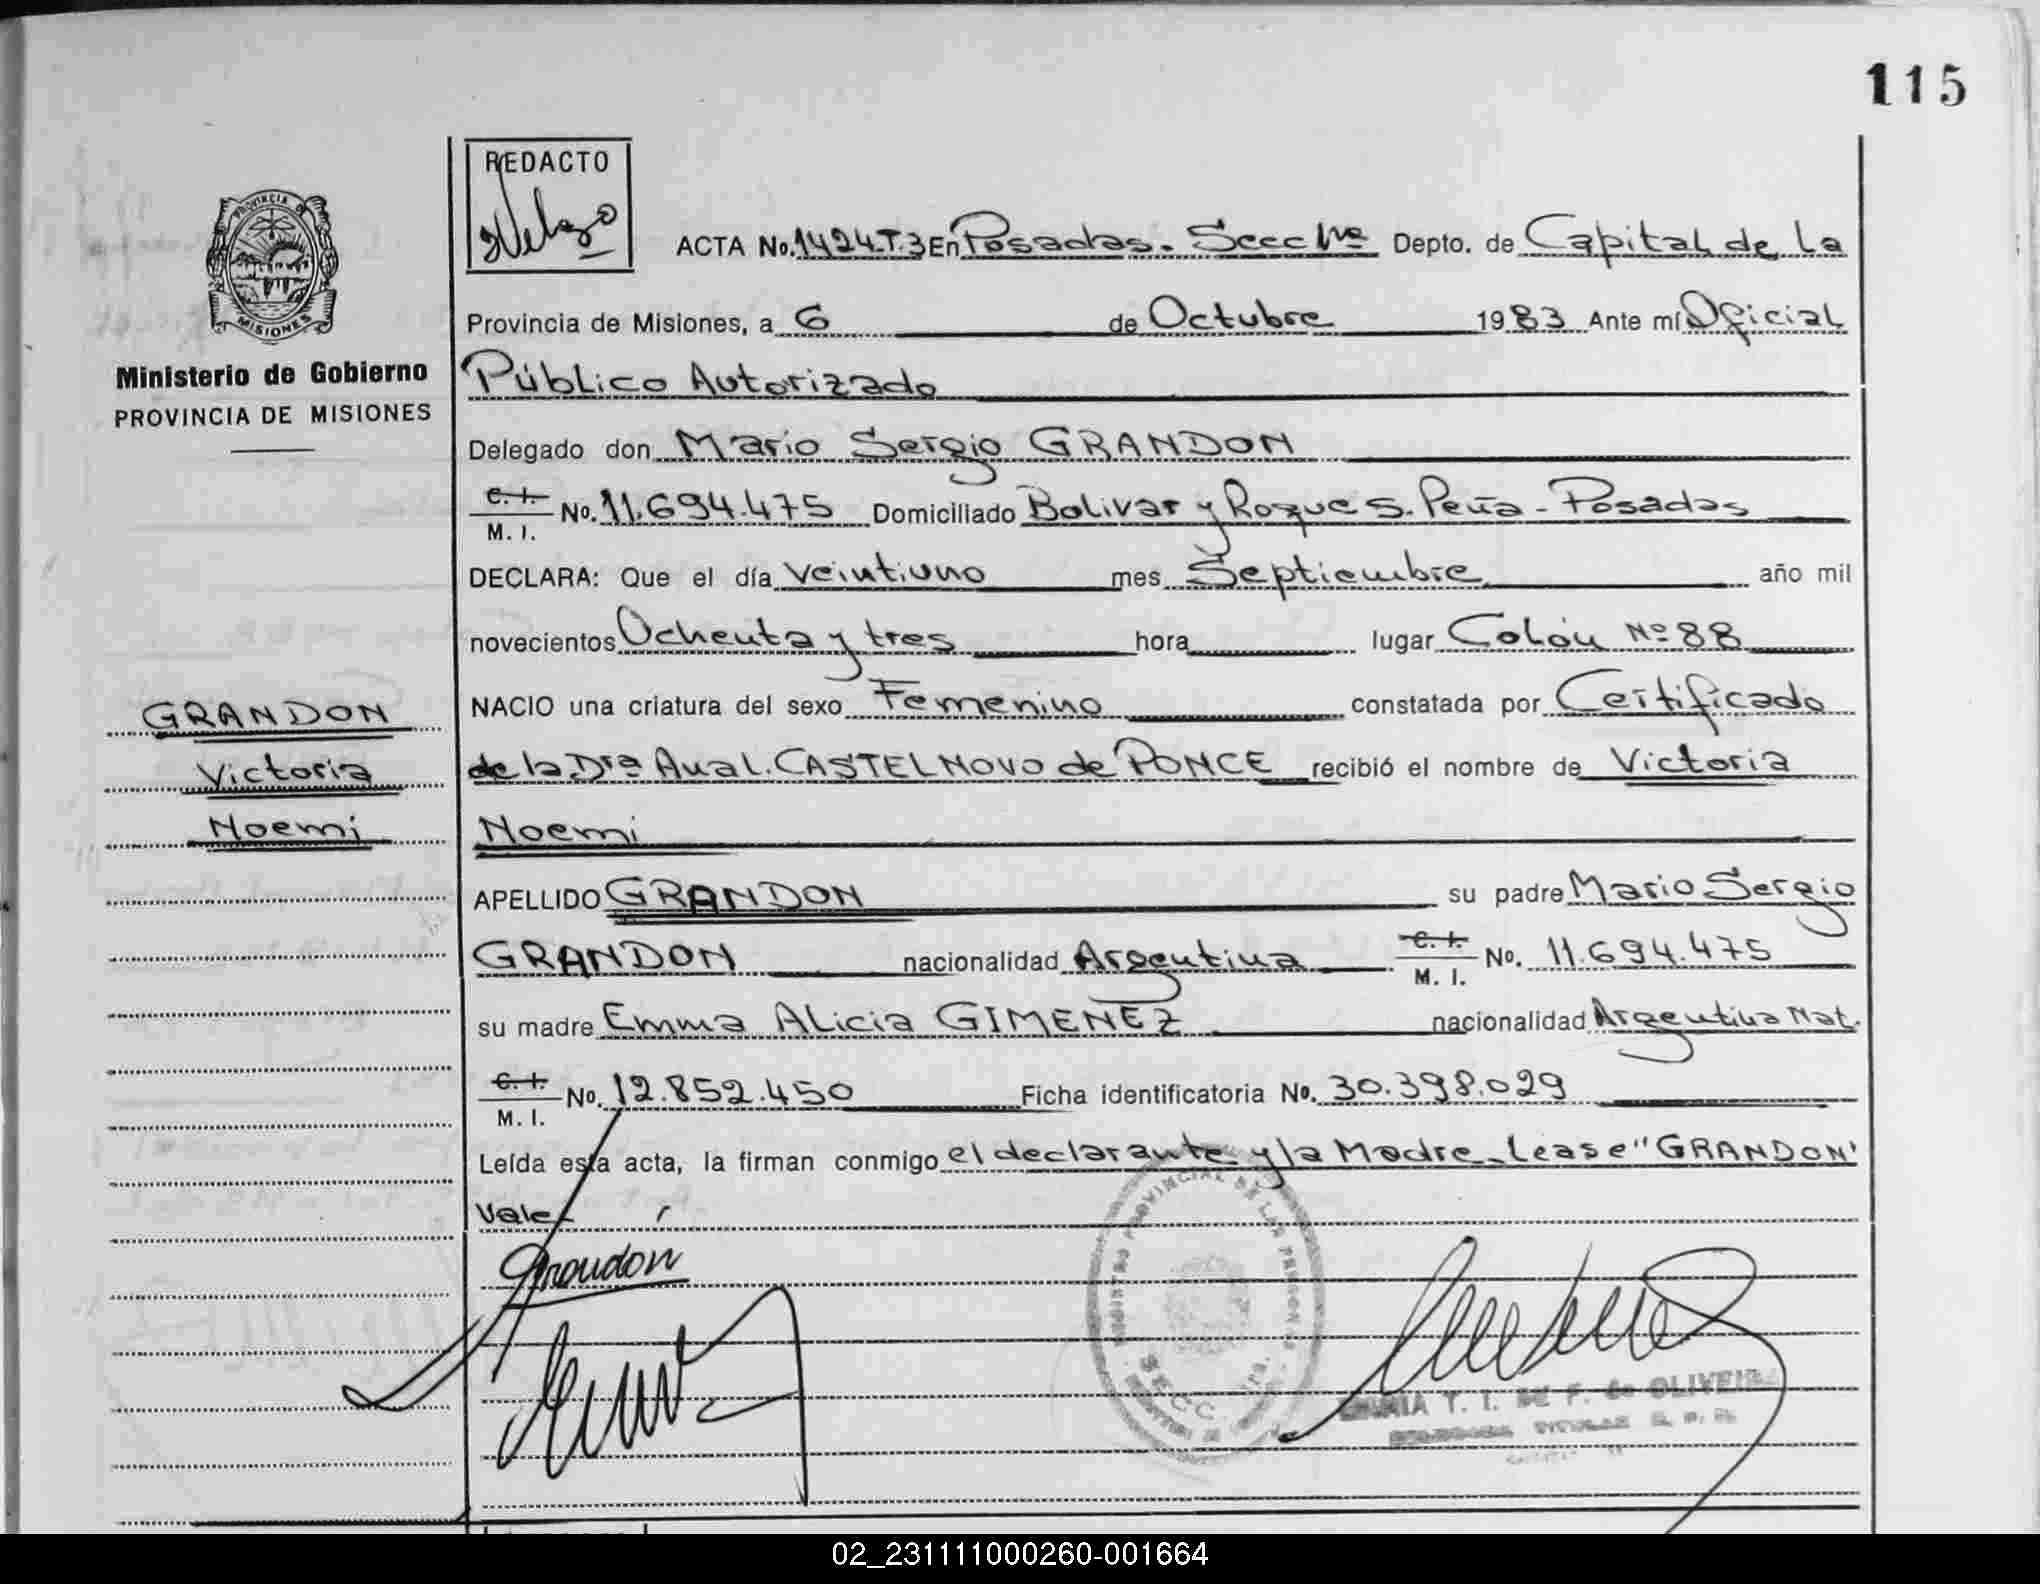 115
REDACTO
PROVINCIA DE
MISIONES
Ministerio de Gobierno
PROVINCIA DE MISIONES
ACTA No. 1424.T.3 En Posadas. Secc 1ra Depto. de Capital de La
Provincia de Misiones, a 6 de Octubre 1983 Ante mí Oficial
Público Autorizado
Delegado don Mario Sergio GRANDON
C. I. M. I. No. 11.694.475 Domiciliado Bolivar y Roque S. Peña - Posadas
DECLARA: Que el día veintiuno mes Septiembre año mil
novecientos Ochenta y tres hora lugar Colón Nº 88
GRANDON
Victoria
Noemi
NACIO una criatura del sexo Femenino constatada por Certificado
de la Dra Aual. CASTELNOVO de PONCE recibió el nombre de Victoria
Noemi
APELLIDO GRANDON su padre Mario Sergio
GRANDON nacionalidad Argentina C. I. M. I. No. 11.694.475
su madre Emma Alicia GIMENEZ nacionalidad Argentina Nat.
C. I. M. I. No. 12.852.450 Ficha identificatoria No. 30.398.029
Leída esta acta, la firman conmigo el declarante y la Madre - Lease "GRANDON"
Vale
Grandon
REGISTRO PROVINCIAL DE LAS PERSONAS
SECC. 1ra
MARIA T. I. DE F. de OLIVEIRA
DELEGADA TITULAR R. P. P.
02_231111000260-001664